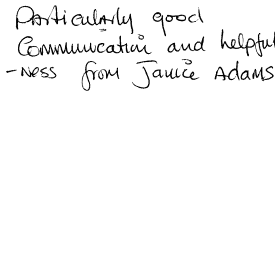 Particularly good
Communication and helpful
-ness from Janice Adams